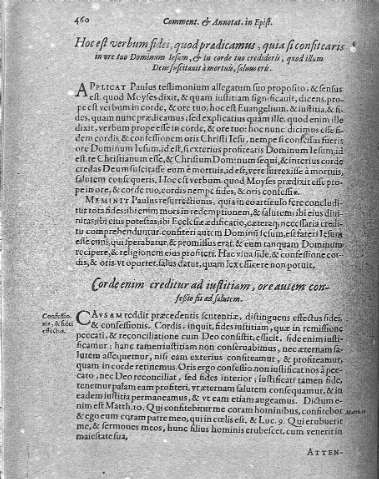 460 Comment. & Annotat. in Epist.
Hoc est verbum fidei, quod prædicamus, quia si confitearis
in ore tuo Dominum Iesum, & in corde tuo credideris, quod illum
Deus suscitauit à mortuis, saluus eris.
APPLICAT Paulus testimonium allegatum suo proposito, & sensus
est. quod Moyses dixit, & quam iustitiam significauit, dicens, pro-
pe est verbum in corde, & ore tuo, hoc est Euangelium, & iustitia, & fi-
des, quam nunc prædicamus, sed explicatius quàm ille. quod enim ille
dixit, verbum prope esse in corde, & ore tuo: hoc nunc dicimus esse fi-
dem cordis, & confessionem oris Christi Iesu, nempe si confessus fueris
ore Dominum Iesum, id est, si exterius profitearis Dominum Iesum, id
est te Christianum esse, & Christum Dominum sequi, & interius corde
credas Deum suscitasse eum è mortuis, id est, verè surrexisse à mortuis,
salutem consequeris. Hoc est verbum quod Moyses prædixit esse pro-
pe in ore, & corde tuo, cordis nempe fides, & oris confessio.
MEMINIT Paulus resurrectionis, quia in eo articulo ferè concludi-
tur tota fides. siquidem mors in redemptionem, & salutem: ibi eius diui-
nitas: ibi eius potestas: ibi Ecclesiæ ædificatio, cæteraq; necessaria credi-
tu comprehenduntur. confiteri autem Dominum Iesum, est fateri Iesum
esse eum, qui sperabatur, & promissus erat, & eum tanquam Dominum
recipere, & religionem eius profiteri. Hæc via fide, & confessione cor-
dis, & oris vt oportet, salus datur, quam lex efficere non potuit.
Corde enim creditur ad iustitiam, ore autem con-
fessio fit ad salutem.
Confessio-
nis, & fidei
effectus.
CAVSAM reddit præcedentis sententiæ, distinguens effectus fidei,
& confessionis. Cordis, inquit, fides iustitiam, quæ in remissione
peccati, & reconciliatione cum Deo consistit, efficit. fide enim iusti-
ficamur: hanc tamen iustitiam non conseruabimus, nec æternam sa-
lutem assequemur, nisi eam exterius confiteamur, & profiteamur,
quam in corde retinemus. Oris ergo confessio non iustificat nos à pec-
cato, nec Deo reconciliat, sed fides interior, iustificati tamen fide,
tenemur palam eam profiteri, vt æternam salutem consequamur, & in
eadem iustitia permaneamus, & vt eam etiam augeamus. Dictum e-
nim est Matth. 10. Qui confitebitur me coram hominibus, confitebor
& ego eum coram patre meo, qui in cœlis est, & Luc. 9. Qui erubuerit
me, & sermones meos, hunc filius hominis erubescet, cum venerit in
maiestate sua,
ATTEN-